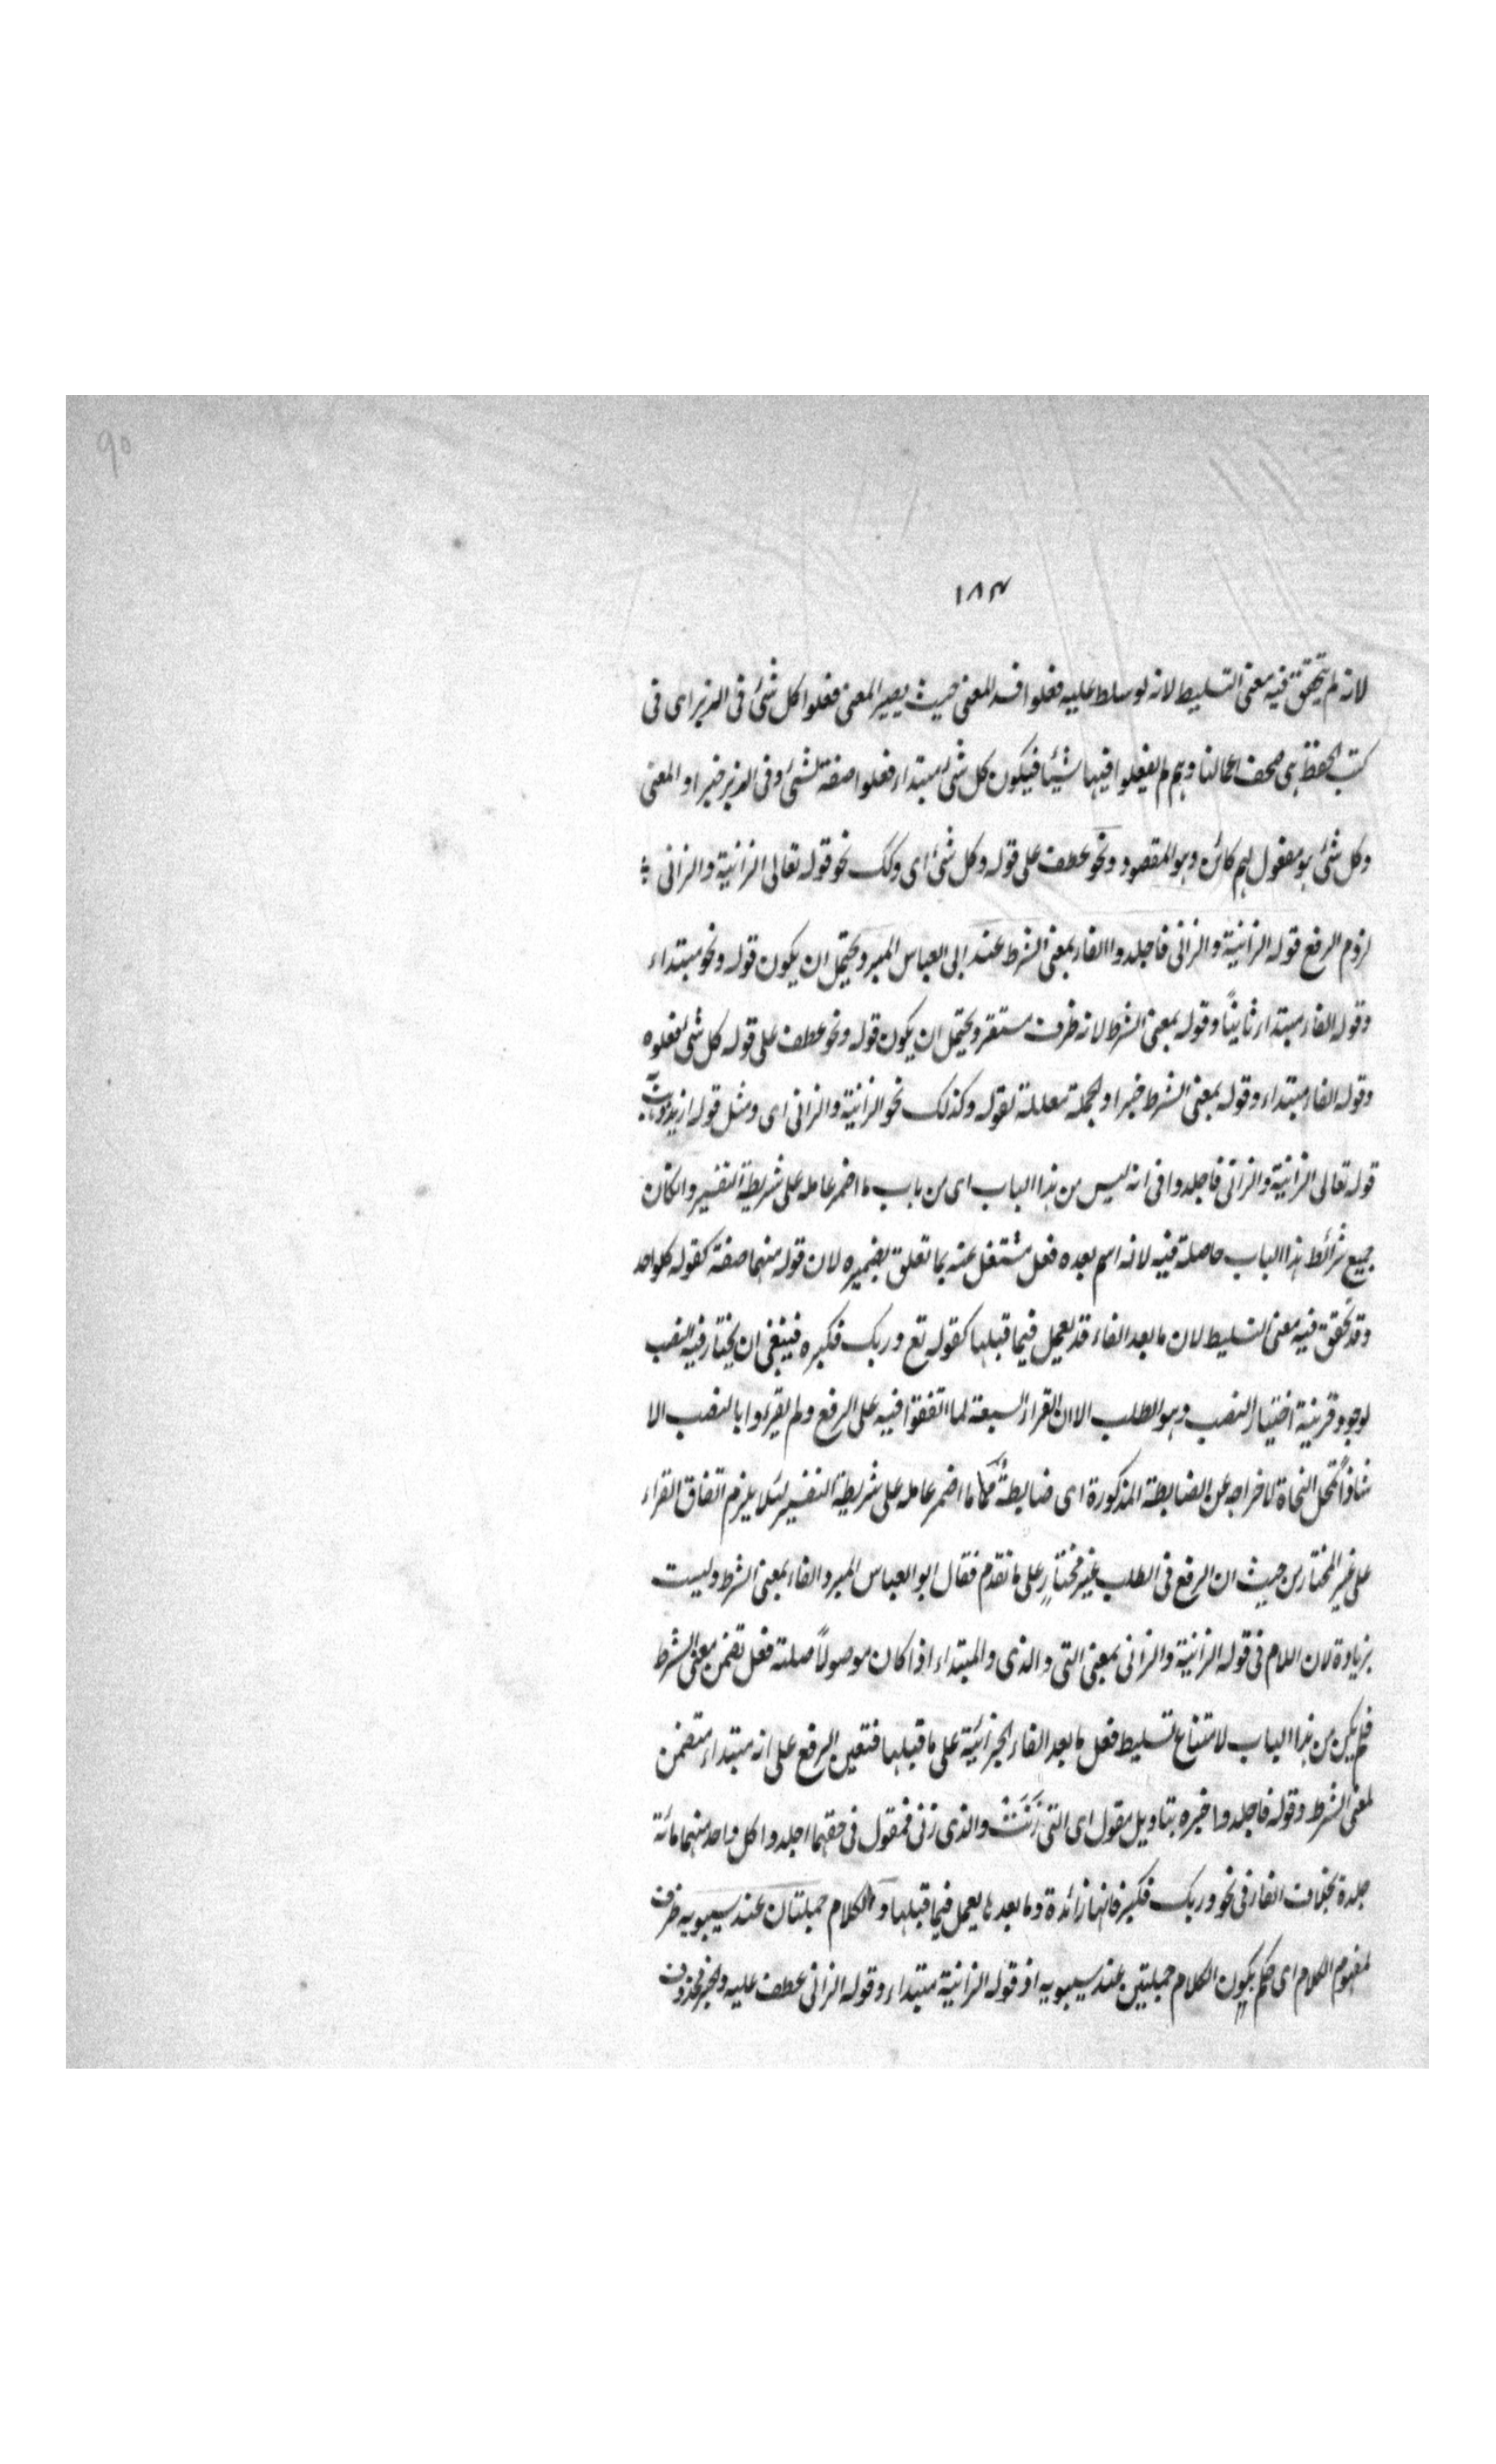 ٩٥
١٨٣
لانه لم يتحقق فيه معنى التسليط لانه لو سلط عليه فعلوا فسد المعنى حيث يصير المعنى فعلوا كل شئ فى الزبر اى فى
كتب الحفظة هى صحف اعمالنا وهم لم يفعلوا فيها شيئا فيكون كل شئ مبتداء فعلوا صفة لشئ وفى الزبر خبر او المعنى
وكل شئ هو مفعول لهم كائن وهو المقصود ونحو عطف على قوله وكل شئ اى وكك نحو قوله تعالى الزانية والزانى
لزوم الرفع قوله الزانية والزانى فاجلدوا الفاء بمعنى الشرط عند ابى العباس المبرد ويحتمل ان يكون قوله ونحو مبتداء
وقوله الفاء مبتداء ثانياً وقوله بمعنى الشرط لانه ظرف مستقر ويحتمل ان يكون قوله ونحو عطف على قوله كل شئ فعلوه
وقوله الفاء مبتداء وقوله بمعنى الشرط خبرا والجملة معللة لقوله وكذلك نحو الزانية والزانى اى ومثل قوله ازيد
قوله تعالى الزانية والزانى فاجلدوا فى انه ليس من هذا الباب اى من باب ما اضمر عامله على شريطة التفسير وانكان
جميع شرائط هذا الباب حاصلة فيه لانه اسم بعده فعل مشتغل عنه بما تعلق بضميره لان قوله منهما صفة كقوله كلواحد
وقد تحقق فيه معنى التسليط لان ما بعد الفاء قد يعمل فيما قبلها كقوله تع وربك فكبره فينبغى ان يختار فيه النصب
لوجود قرينة اختيار النصب وهو الطلب الا ان القراء السبعة لما اتفقوا فيه على الرفع ولم يقرءوا بالنصب الا
شاذاً تمحل النحاة لاخراجه عن الضابطة المذكورة اى ضابطة ما اضمر عامله على شريطة التفسير لئلا يلزم اتفاق القراء
على غير المختار من حيث ان الرفع فى الطلب غير مختارٍ على ما تقدم فقال ابو العباس المبرد الفاء بمعنى الشرط وليست
بزيادة لان اللام فى قوله الزانية والزانى بمعنى التى والذى والمبتداء اذا كان موصولاً صلته فعل تضمن معنى الشرط
فلم يكن من هذا الباب لامتناع تسليط فعل ما بعد الفاء الجزائية على ما قبلها فتعين الرفع على انه مبتداء متضمن
لمعنى الشرط وقوله فاجلدوا خبره بتاويل مقول اى التى زَنَتْ والذى زنى فمقول فى حقهما اجلدوا كل واحد منهما مائة
جلدة بخلاف الفاء فى نحو وربك فكبر فانها زائدة وما بعدها يعمل فيما قبلها والكلام جملتان عند سيبويه ظرف
لمفهوم الكلام اى حكم بكون الكلام جملتين عند سيبويه اذ قوله الزانية مبتداء وقوله الزانى عطف عليه والخبر محذوف